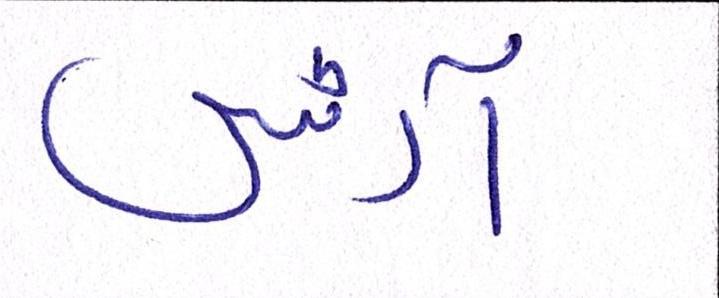 آرٹس